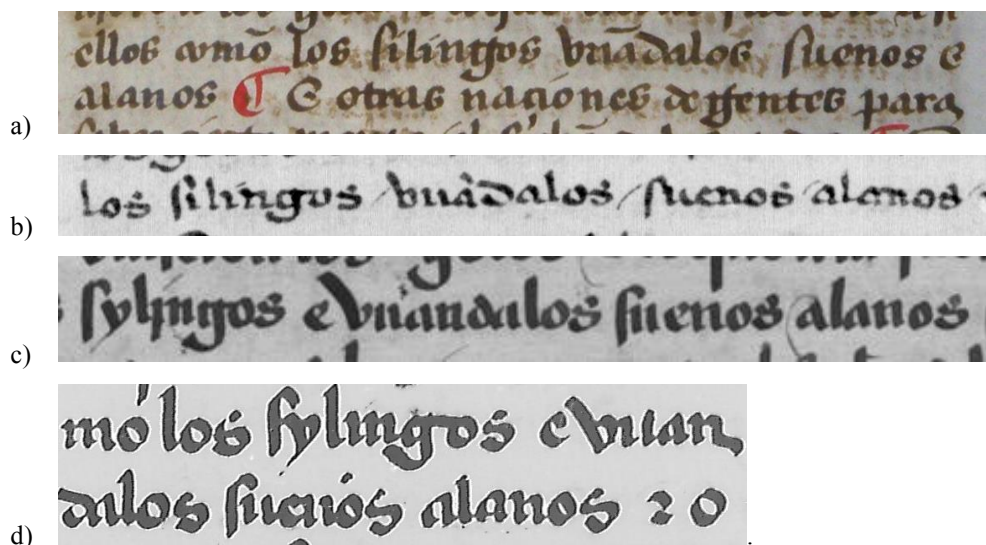 a)
ellos comō los silingos vuādalos suenos e
alanos ¶ E otras naciones de gentes para
b)
los silingos vuādalos / suenos / alanos
c)
sylingos e vuandalos suenos alanos
d)
mo los sylingos e vuan
dalos suenos alanos 20